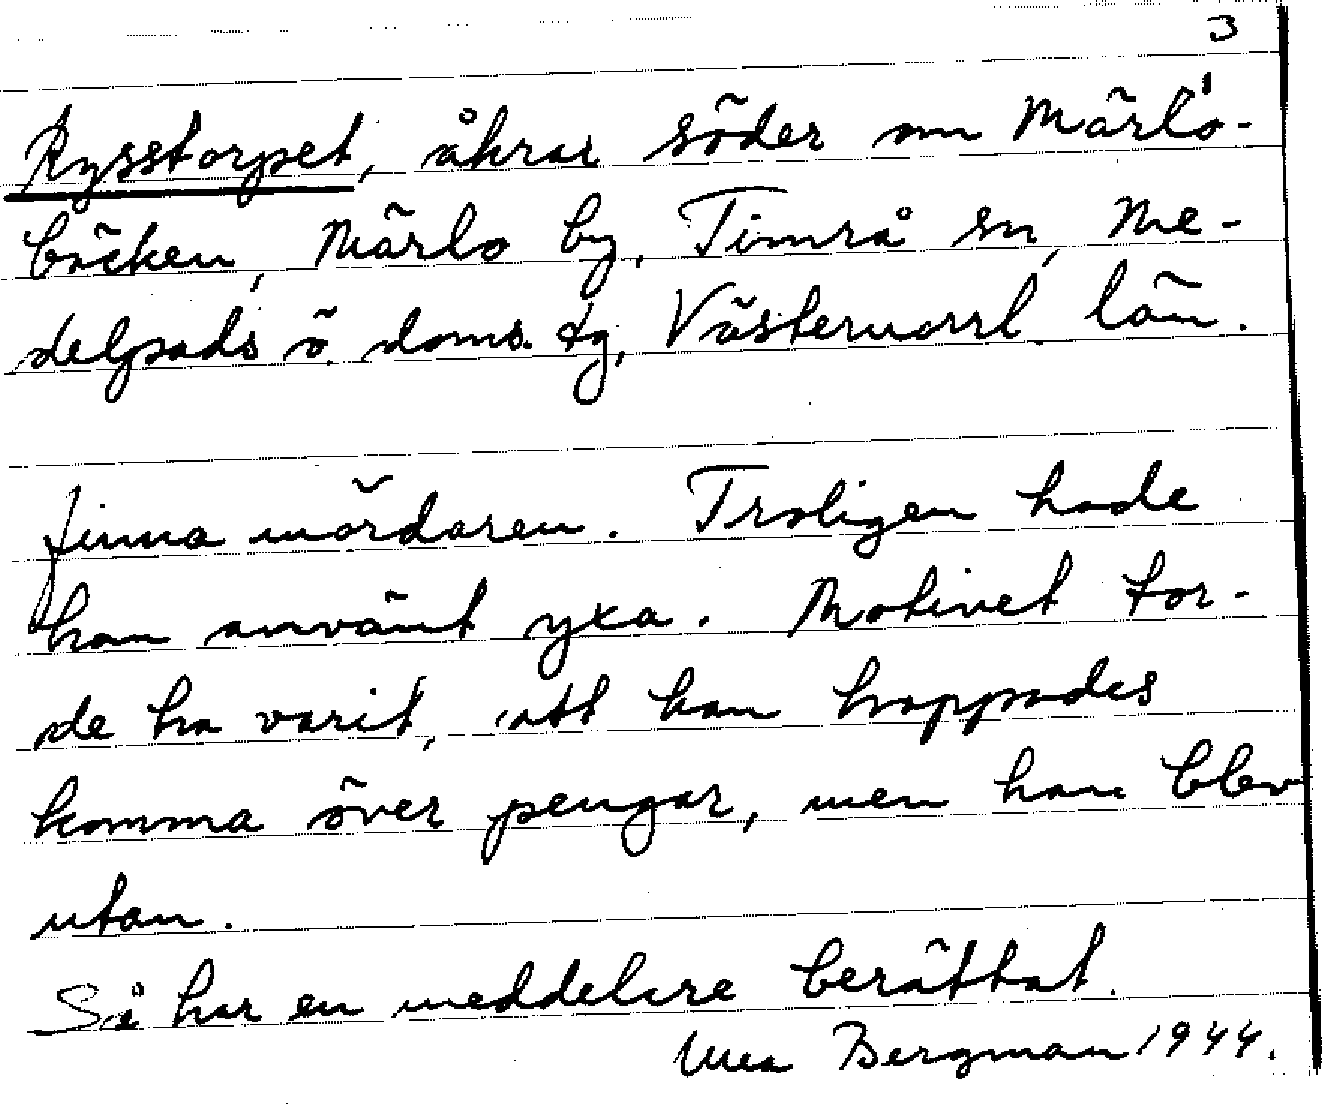 3
Rysstorpet, åkrar söder om Märlo-
bäcken, Märlo by, Timrå sn, Me-
delpads ö. doms. tg, Västernorrl. län.
finna mördaren. Troligen hade
han använt yxa. Motivet tor-
de ha varit, att han hoppades
komma över pengar, men han blev
utan.
Så har en meddelare berättat.
Bergman 1944.